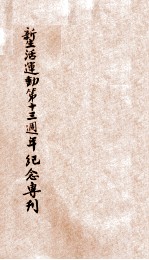 新生活運動第十三週年紀念專刊